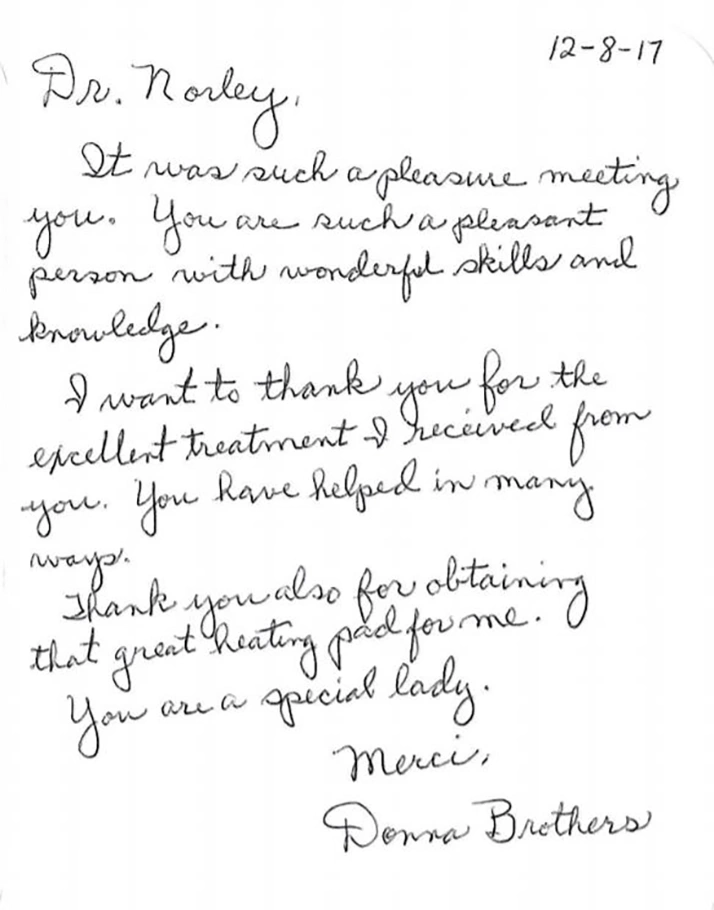 12-8-17
Dr. Norley,
It was such a pleasure meeting
you. You are such a pleasant
person with wonderful skills and
knowledge.
I want to thank you for the
excellent treatment I received from
you. You have helped in many
ways.
Thank you also for obtaining
that great heating pad for me.
You are a special lady.
Merci,
Donna Brothers